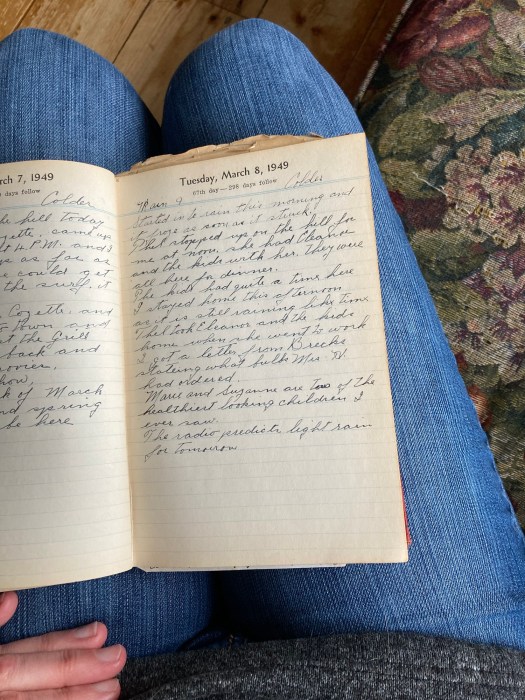 rch 7, 1949
days follow
Colder
he hill today
gette, came up
at 4 P.M. and I
as far as
could get
the surf, it
Cozette, and
town and
at the Grill
back and
movies.
now,
k of March
nd spring
be here
Tuesday, March 8, 1949
67th day—298 days follow
Rain & Colder
Started in to rain this morning and
it froze as soon as it struck.
Thel stopped up on the hill for
me at noon, she had Eleanor
and the kids with her. They were
all here for dinner.
The kids had quite a time here
I stayed home this afternoon
as it is still raining like time.
Thel took Eleanor and the kids
home when she went to work
I got a letter from Brecks
stateing what bulbs Mrs. N.
had ordered.
Marie and Suzanne are two of the
healthiest looking children I
ever saw.
The radio predicts light rain
for tomorrow